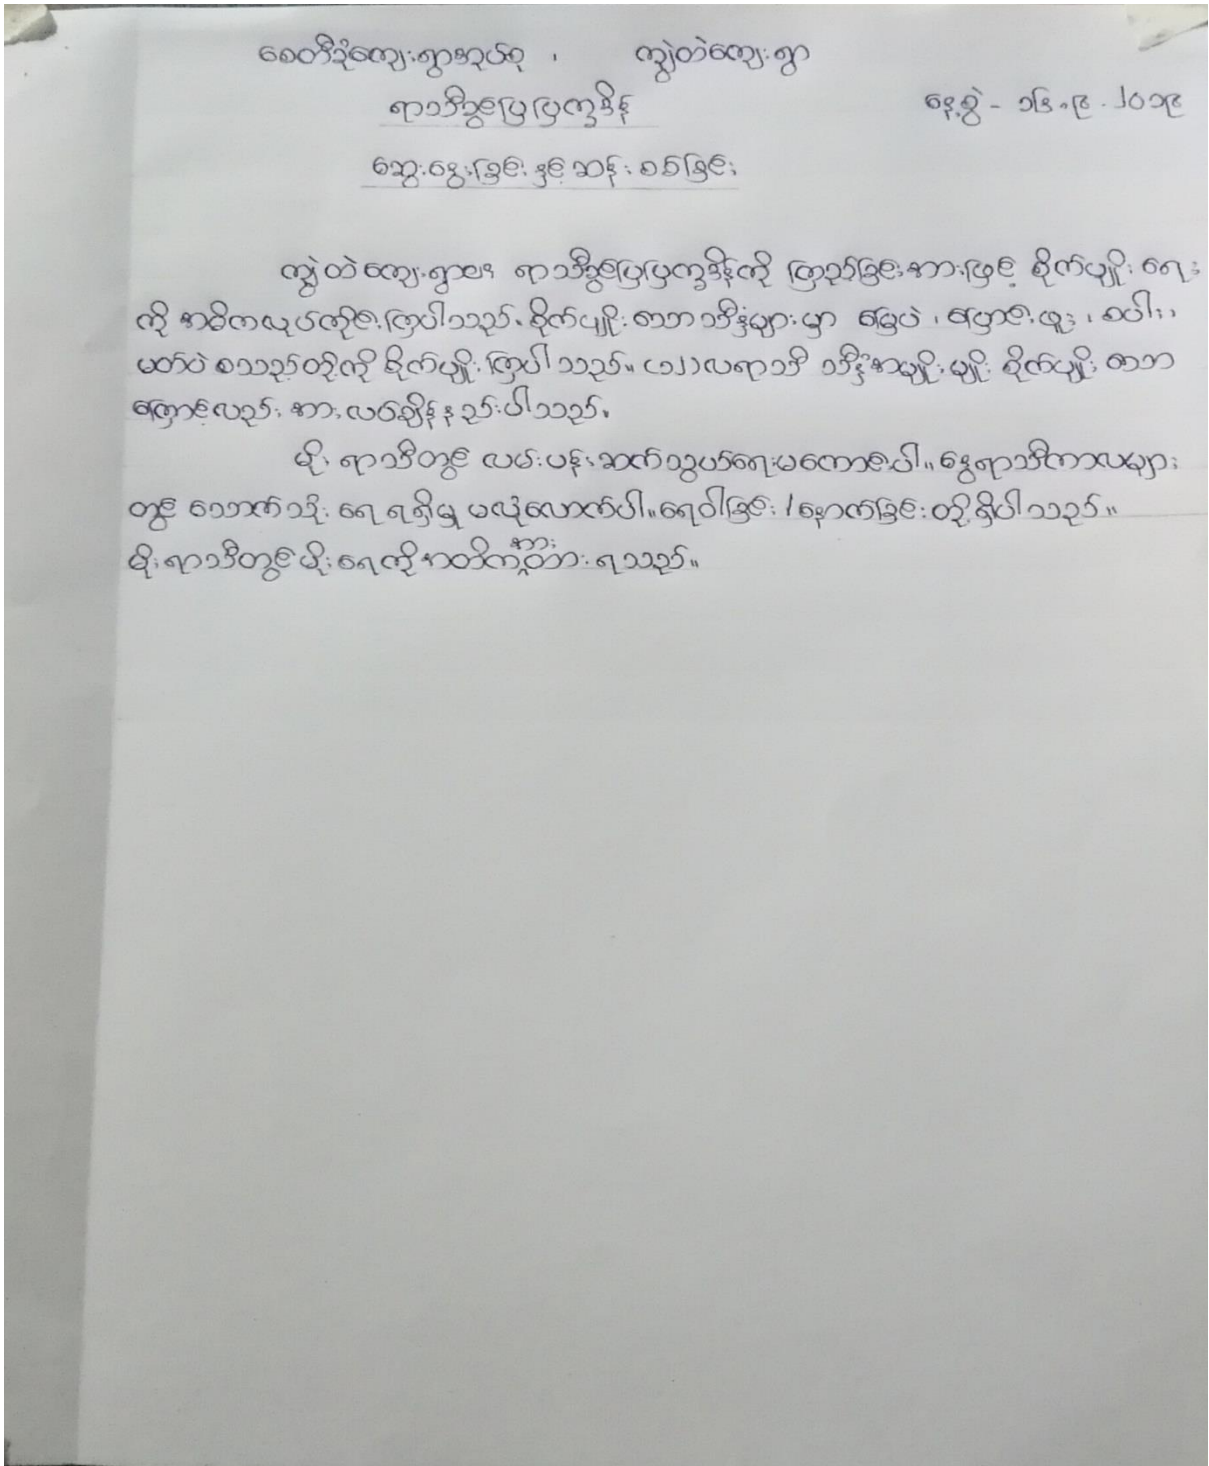 စေတီဒိုးကျေးရွာအုပ်စု ၊ ကျွဲတဲကျေးရွာ
ရာသီခွင်ပြပြက္ခဒိန် နေ့စွဲ - ၁၆.၉.၂၀၁၉
ဆွေးနွေးခြင်းနှင့် ဆန်းစစ်ခြင်း
ကျွဲတဲကျေးရွာ၏ ရာသီခွင်ပြပြက္ခဒိန်ကို ကြည့်ခြင်းအားဖြင့် စိုက်ပျိုးရေး
ကို အဓိကလုပ်ကိုင်ကြပါသည်။ စိုက်ပျိုးသော သီးနှံများမှာ မြေပဲ ၊ ပြောင်းဖူး ၊ စပါး ၊
မတ်ပဲ စသည်တို့ကို စိုက်ပျိုးကြပါသည်။ (၁၂)လရာသီ သီးနှံအမျိုးမျိုး စိုက်ပျိုးသော
ကြောင့်လည်း အားလပ်ချိန်နည်းပါသည်။
မိုးရာသီတွင် လမ်းပန်းဆက်သွယ်ရေးမကောင်းပါ။ နွေရာသီကာလများ
တွင် သောက်သုံးရေ ရရှိမှု မလုံလောက်ပါ။ ရေဝါခြင်း / နောက်ခြင်းတို့ရှိပါသည်။
မိုးရာသီတွင် မိုးရေကို အဓိကအားထားရသည်။